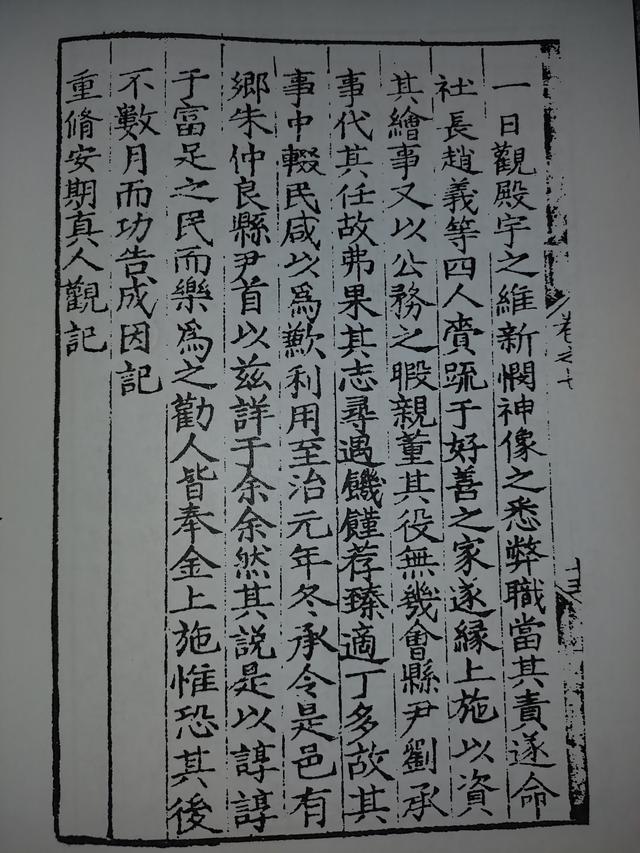 卷之七
十三
一日觀殿宇之維新憫神像之悉弊職當其責遂命
社長趙義等四人賷疏于好善之家遂緣上施以資
其繪事又以公務之暇親董其役無幾會縣尹劉承
事代其任故弗果其志尋遇饑饉荐臻適丁多故其
事中輟民咸以爲歉利用至治元年冬承令是邑有
鄉朱仲良縣尹首以兹詳于余余然其説是以諄諄
于富足之民而樂爲之勸人皆奉金上施惟恐其後
不數月而功告成因記
重脩安期真人觀記